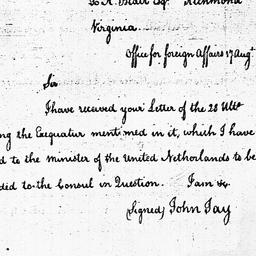 Blair Esqr Richmond
Virginia.
Office for foreign Affairs 17 Augt
Sir
I have received your Letter of the 28 Ulto
ng the Exequatur mentioned in it, which I have
d to the minister of the United Netherlands to be
ded to the Consul in Question. I am &c
(Signed) John Jay